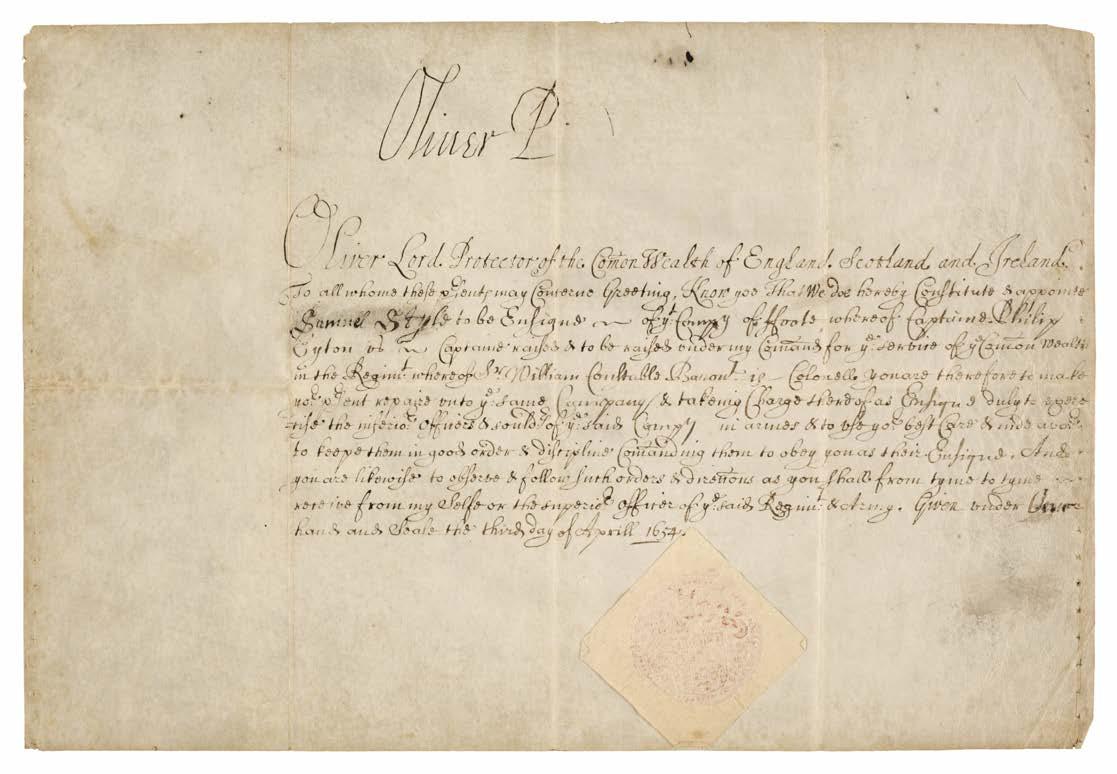 Oliver P
Oliver Lord Protector of the Com̃on Wealth of England Scotland and Ireland
To all whome these p̱sents may Concerne Greeting, Know yee That We doe hereby Constitute & appointe
Samuel to be Ensigne of yt Compy of ffoote whereof Captaine Philip
Eyton is Captaine raised & to be raised under my Comand for ye service of ye Com̃on Wealth
in the Regimt whereof Sr William Constable Baront is Colonell, you are therefore to make
yor p̱sent repaire unto ye same Company & takeing Charge thereof as Ensigne duly to exerc
ise the inferior Officers & souldrs of ye said Compy in armes & to use yor best Care & indeavor
to keepe them in good order & discipline Comanding them to obey you as their Ensigne, And
you are likewise to observe & follow such orders & direcc̃ons as you shall from tyme to tyme
receive from my Selfe or the superior Officer of ye said Regimt & Army. Given under
hand and Seale the third day of Aprill 1654